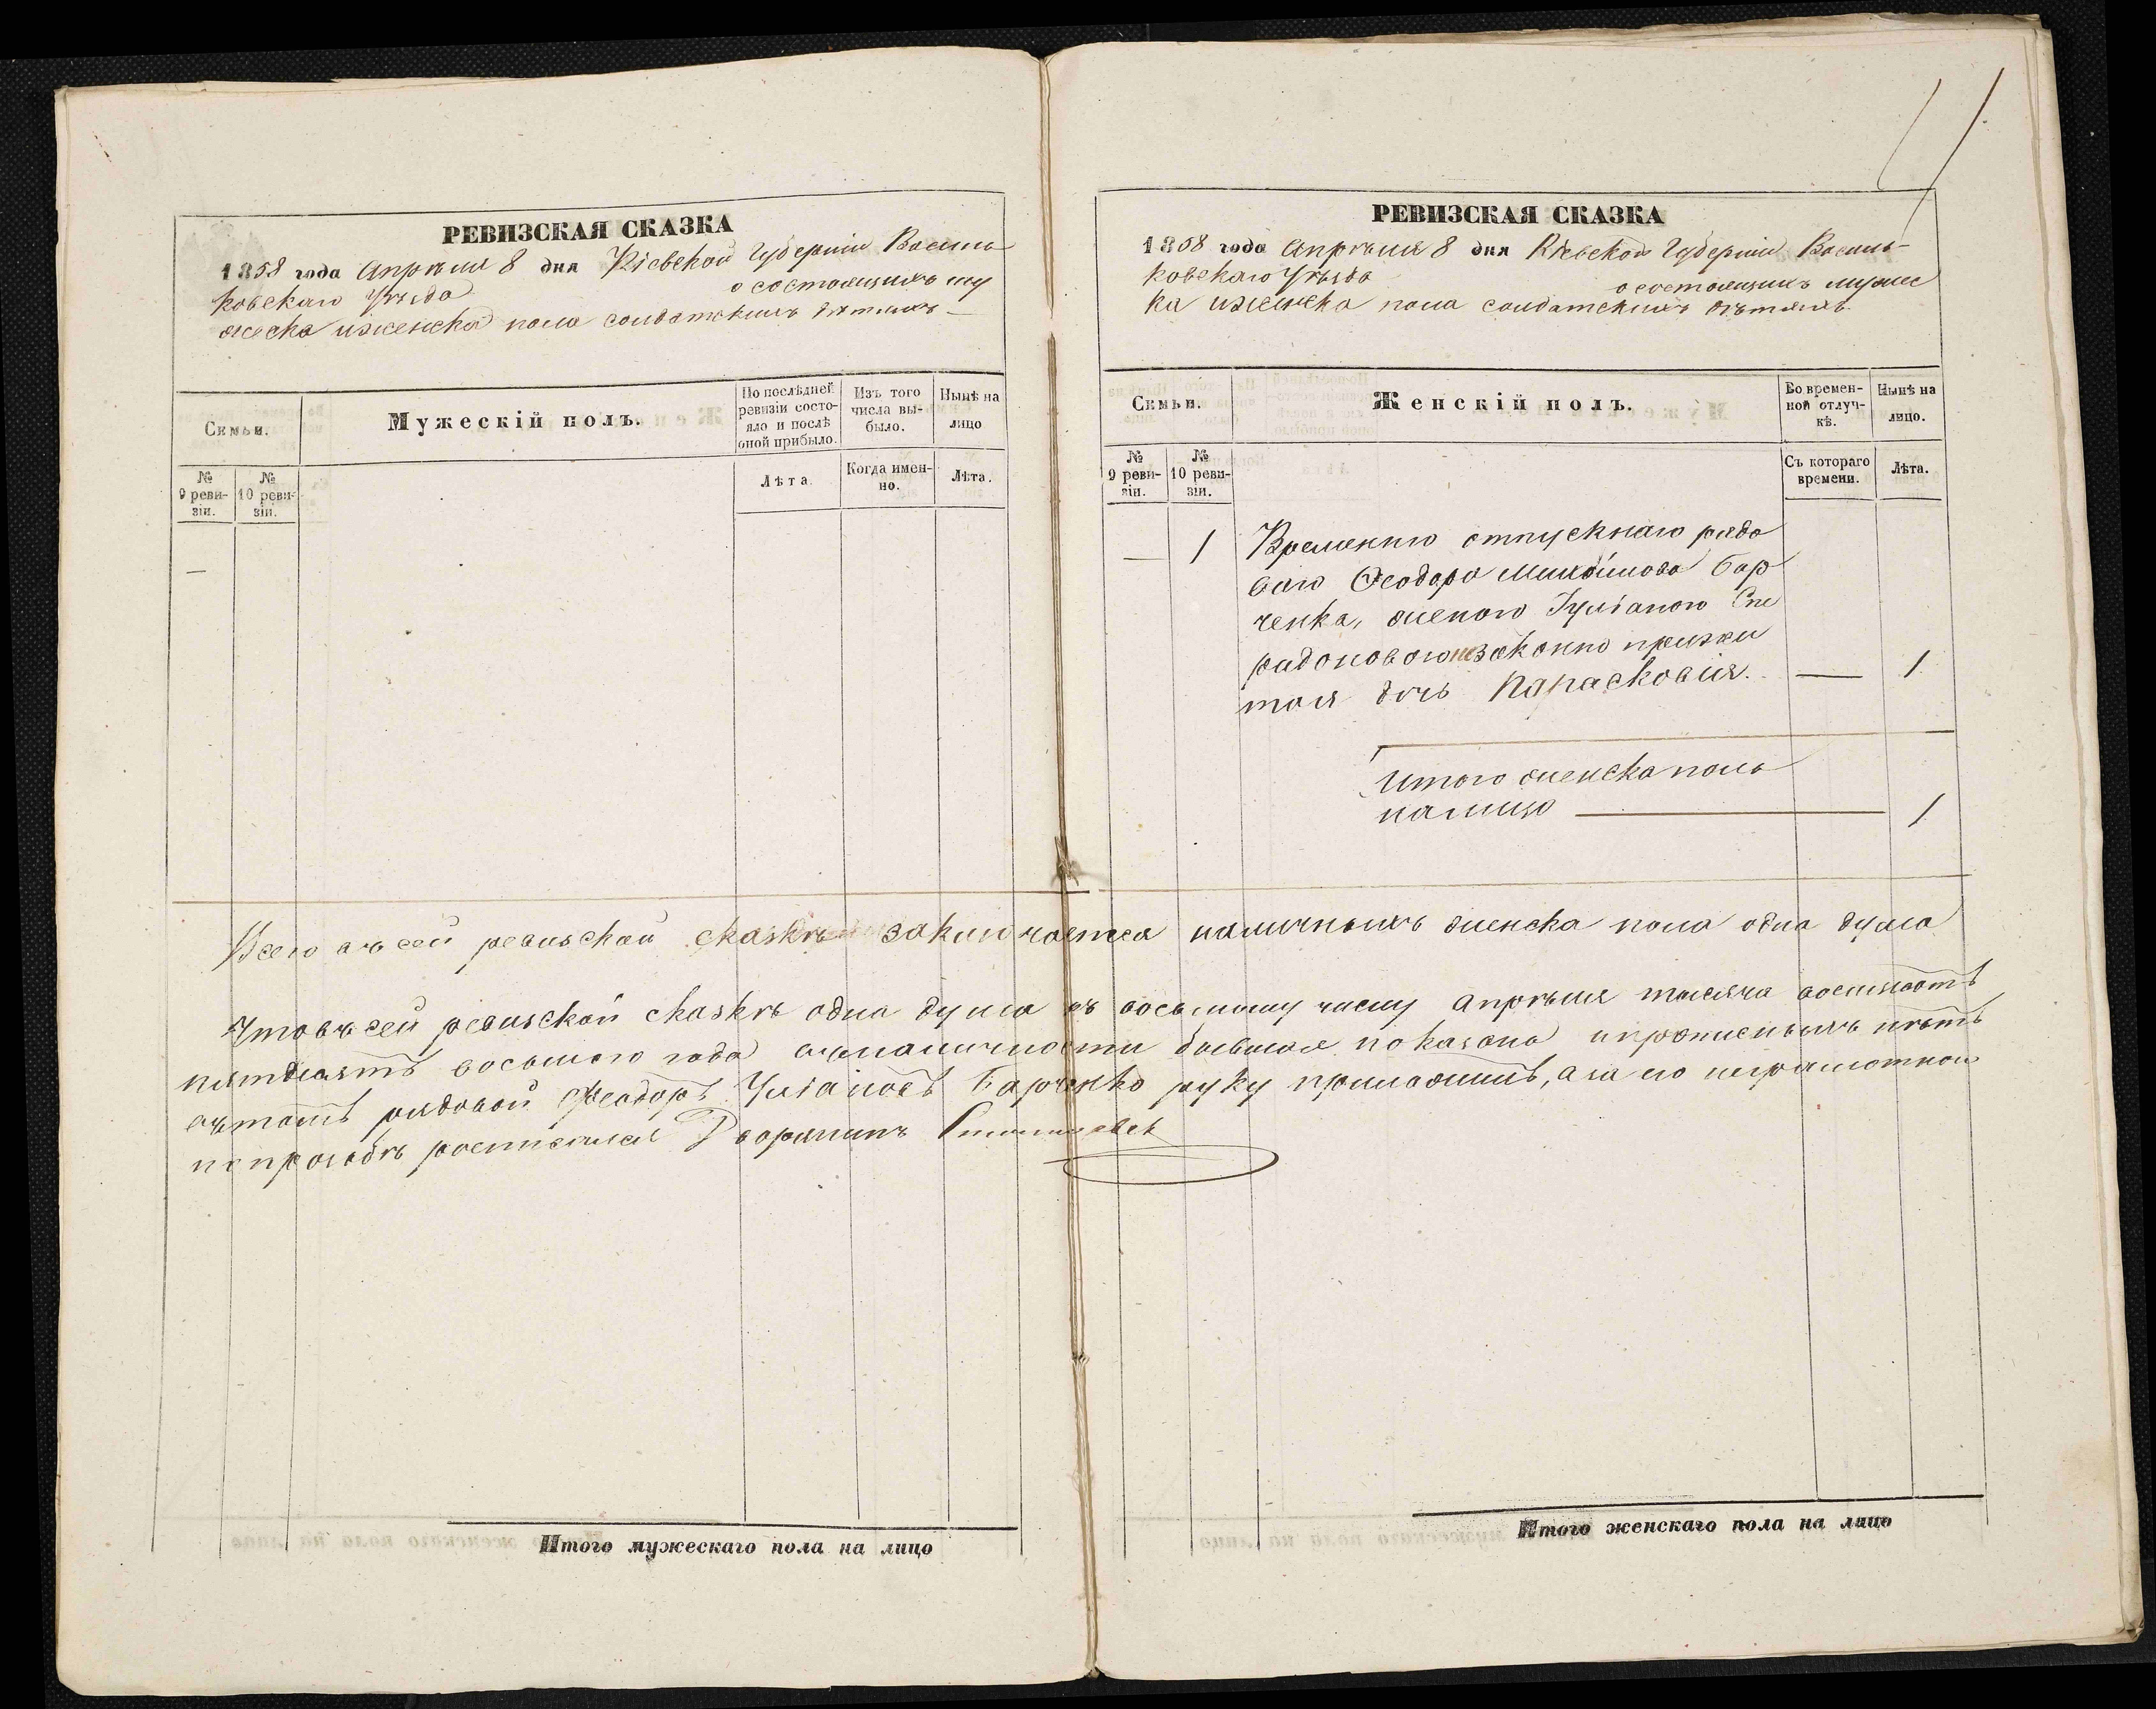 РЕВИЗСКАЯ СКАЗКА
1858 года Апрѣля 8 дня Кіевской Губерніи Василь-
ковскаго Уѣзда о состоящихъ му
жеска и женска пола солдатскихъ дѣтяхъ
Семьи.
Мужескій полъ.
По послѣдней ревизіи состояло и послѣ оной прибыло.
Изъ того числа выбыло.
Нынѣ на лицо
№ 9 ревизіи.
№ 10 ревизіи.
Лѣта
Когда именно.
Лѣта.
—
Итого мужескаго пола на лицо
РЕВИЗСКАЯ СКАЗКА
1858 года Апрѣля 8 дня Кіевской Губерніи Василь-
ковскаго Уѣзда о состоящихъ мужес
ка и женска пола солдатскихъ дѣтяхъ
Семьи.
Женскій полъ.
Во временной отлучкѣ.
Нынѣ на лицо.
№ 9 ревизіи.
№ 10 ревизіи.
Съ котораго времени.
Лѣта.
— 1 Временно отпускнаго рядо
ваго Феодора Бар
ченка, женою Іуліаною Спи
ридоновою незаконно прижи
тая дочь Парасковія. — 1
Итого женска пола
налицо — 1
Всего въ сей ревизской сказкѣ заключается наличныхъ женска пола одна душа
Что въ сей ревизской сказкѣ одна душа къ восьмому числу Апрѣля тысяча восемьсотъ
пятдесятъ восьмого года въ наличности бывшая показана и прописныхъ нѣтъ
въ томъ рядовой Феодоръ Барченко руку приложилъ, а за его неграмотного
по прозбѣ росписался Дворянинъ
Итого женскаго пола на лицо